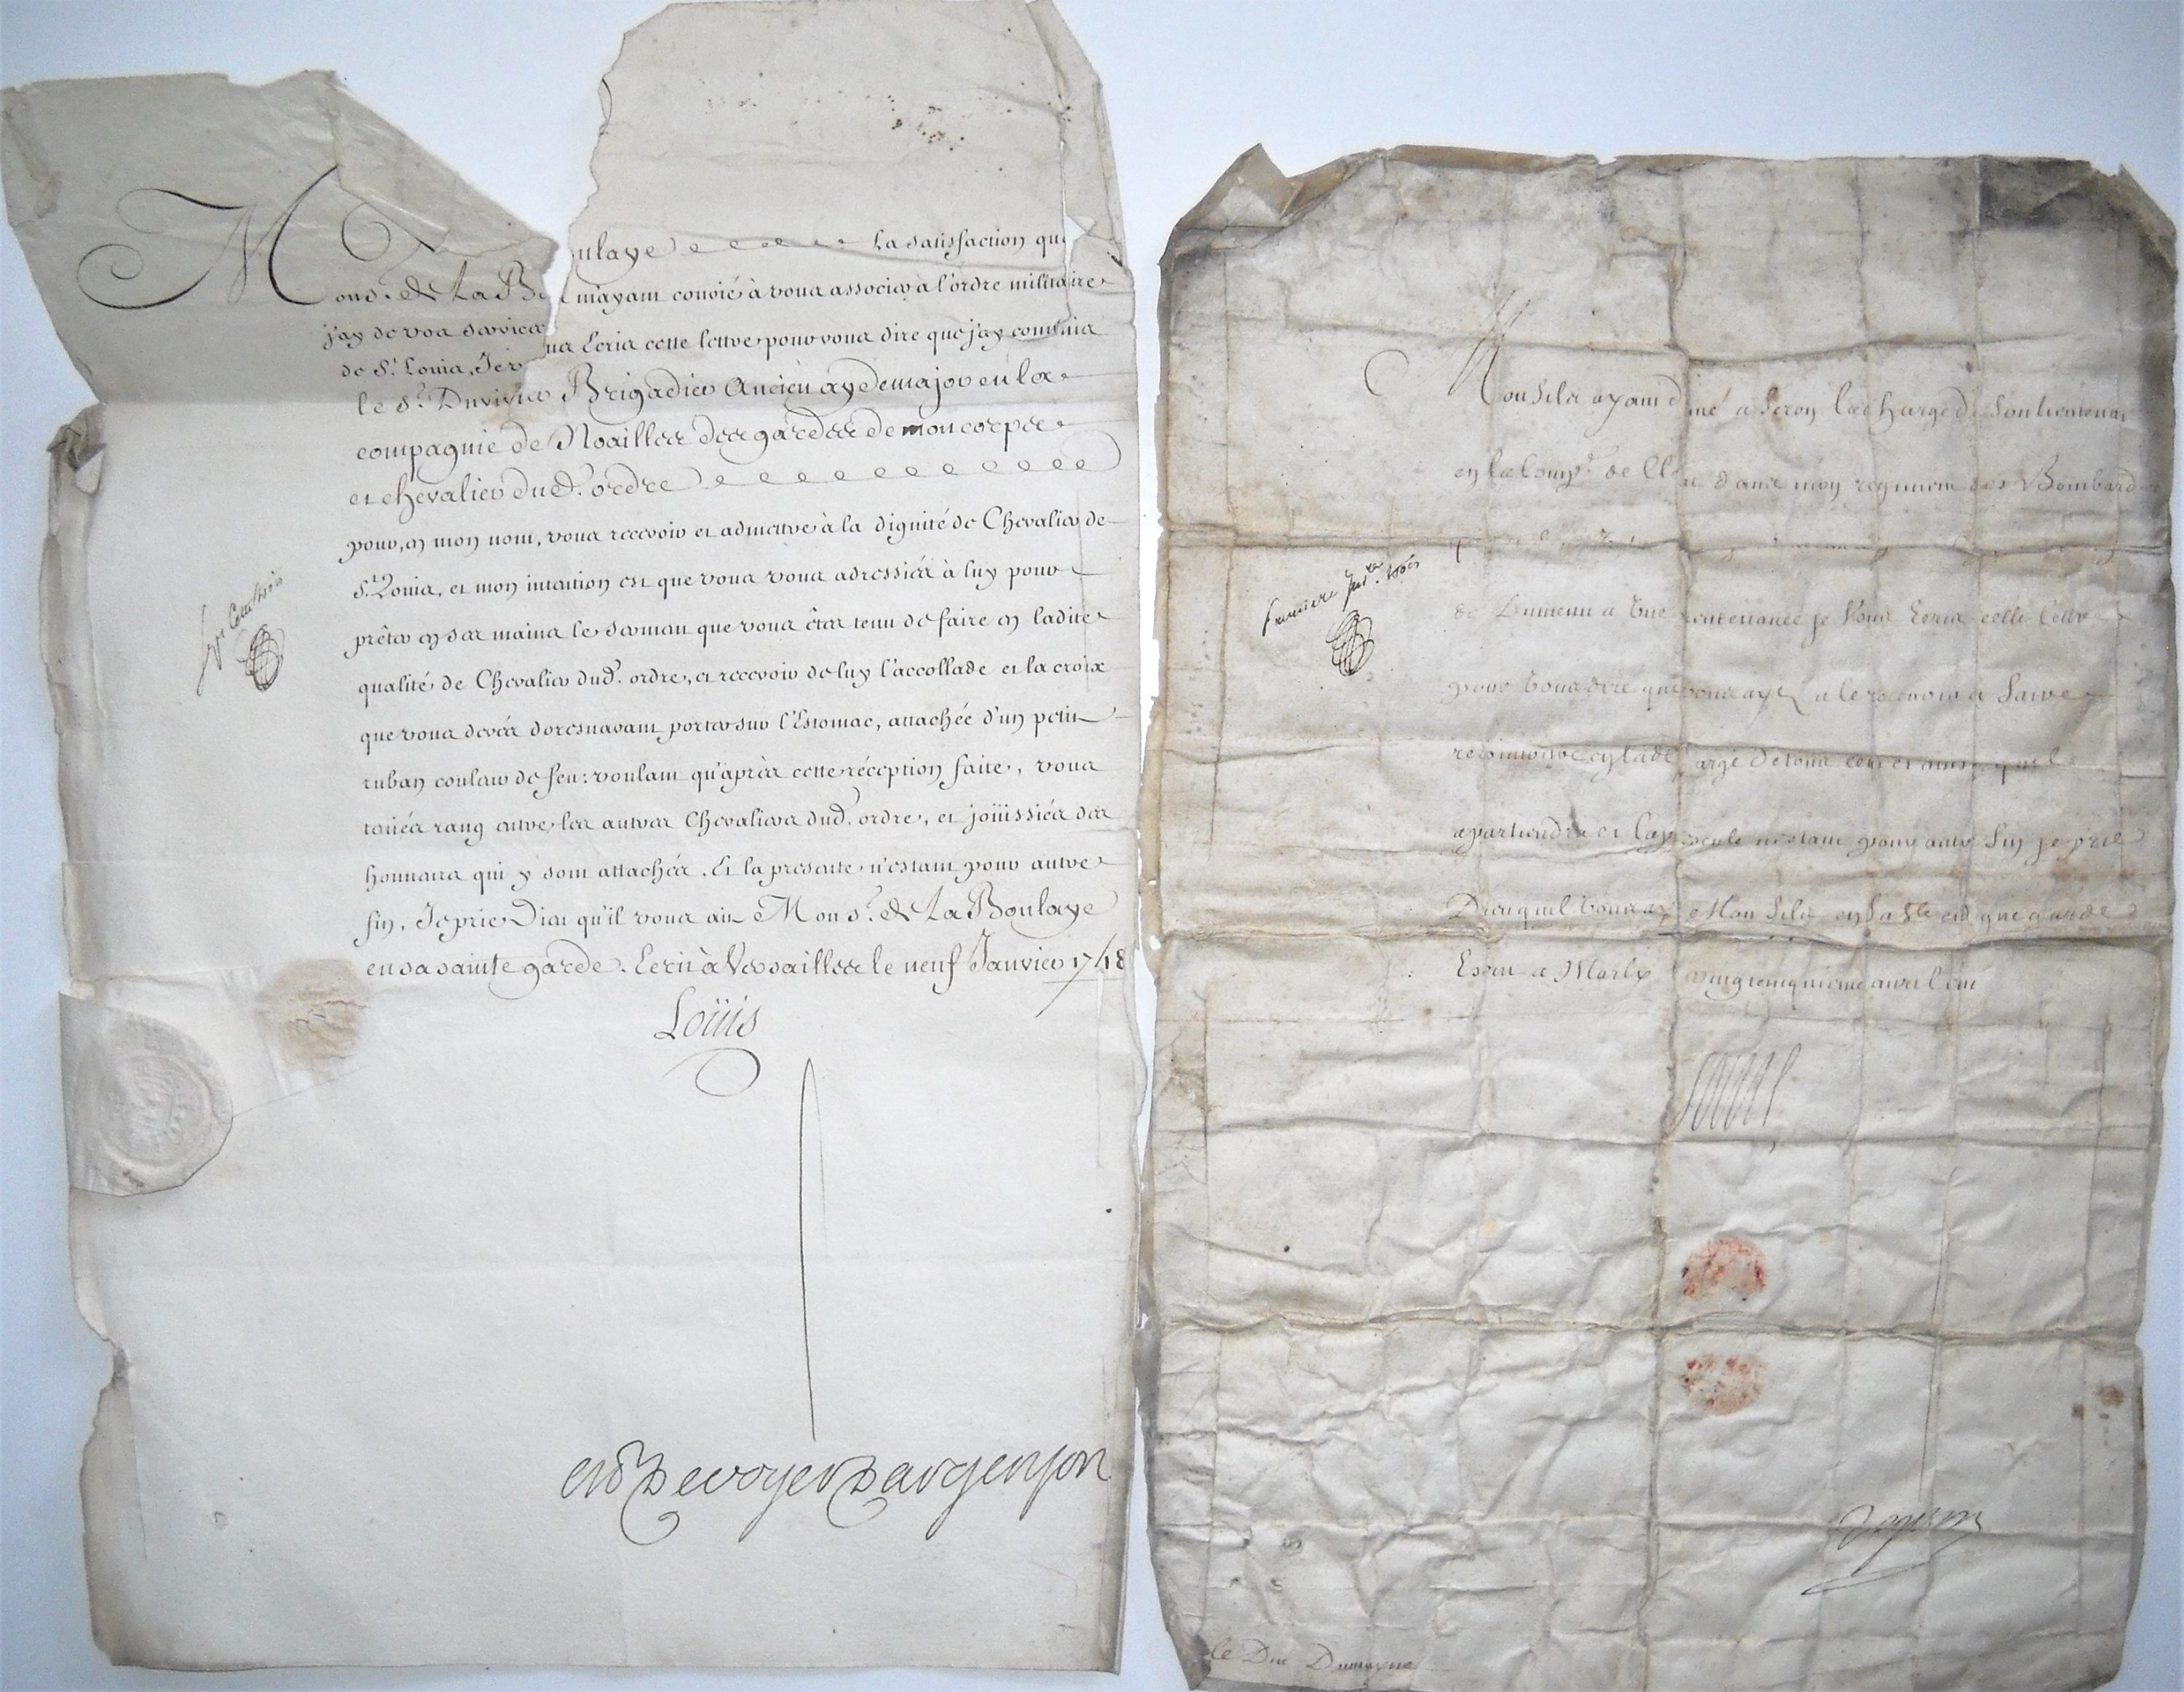 Mons.r de La Boulaye La satisfaction que
j'ay de vos services m'ayant convié à vous associer à l'ordre militaire
de S.t Louis, Je vous Ecris cette lettre pour vous dire que j'ay commis
le S.r Duvivier Brigadier Ancien aydemajor en la
compagnie de Noailles des gardes de mon corps
et chevalier dud. ordre
pour, en mon nom, vous recevoir et admettre à la dignité de Chevalier de
S.t Louis, et mon intention est que vous vous adressiés à luy pour
prêter en ses mains le serment que vous êtes tenu de faire en ladite
qualité de Chevalier dud. ordre, et recevoir de luy l'accollade et la croix
que vous devés doresnavant porter sur l'Estomac, attachée d'un petit
ruban couleur de feu: voulant qu'après cette réception faite, vous
teniés rang entre les autres Chevaliers dud. ordre, et joüissiés des
honneurs qui y sont attachés. Et la presente n'estant pour autre
fin, Je prie Dieu qu'il vous ait Mons.r de La Boulaye
en sa sainte garde. Ecrit à Versailles le neuf Janvier 1748
Loüis
M de voyer D'argenson
Mons ayant donné a la charge de Souslieutenant
en la Comp.e de dans mon regiment des Bombardiers
a une lieutenance je vous Ecris cette lettre
pour vous dire que vous ayez a le recevoir et faire
reconnoistre en lad. charge de tous ceux et ainsi quil
apartiendra et la presente n'estant pour autre fin je prie
Dieu quil vous ayt Mons en sa S.te et digne garde
Escrit a Marly le vingtcinquieme avril
Louis
Voysin
le Duc Dumayne